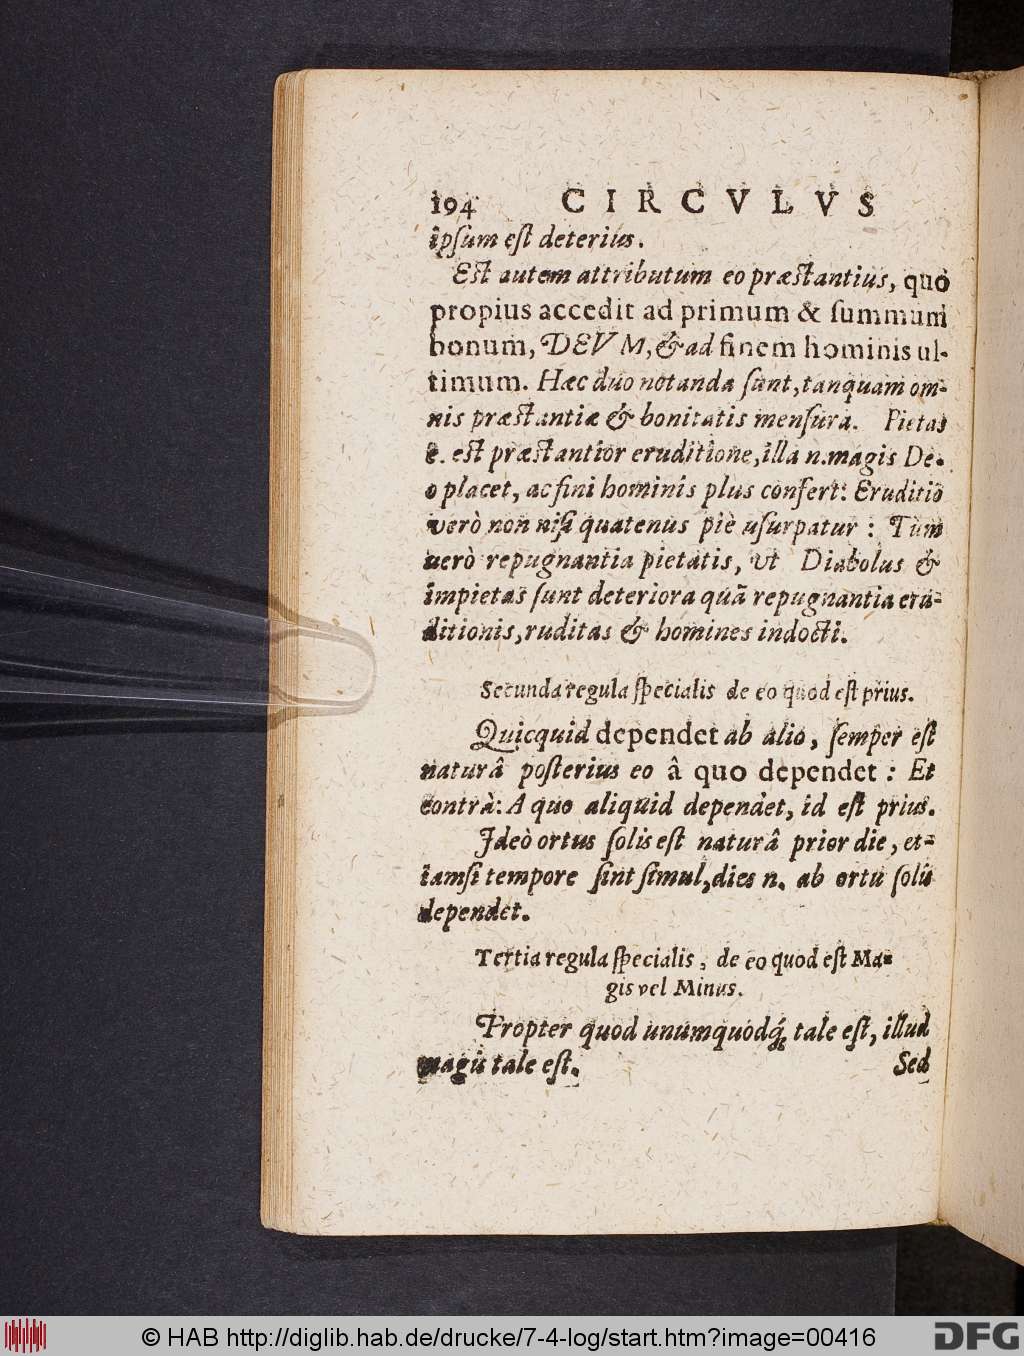 194 CIRCVLVS
ipſum eſt deterius.
Est autem attributum eo præstantius, quò
propius accedit ad primum & ſummum
bonum, DEVM, & ad finem hominis ul-
timum. Hæc duo notanda ſunt, tanquam om-
nis præstantiæ & bonitatis menſura. Pietas
e. est præstantior eruditione, illa n. magis De-
o placet, ac fini hominis plus confert: Eruditio
verò non niſi quatenus piè uſurpatur: Tum
verò repugnantia pietatis, ut Diabolus &
impietas ſunt deteriora quã repugnantia eru-
ditionis, ruditas & homines indocti.
Secunda regula ſpecialis de eo quod eſt prius.
Quicquid dependet ab alio, ſemper eſt
naturâ poſterius eo â quo dependet: Et
contrà: A quo aliquid dependet, id eſt prius.
Ideò ortus ſolis eſt naturâ prior die, et-
iamſi tempore ſint ſimul, dies n. ab ortu ſolis
dependet.
Tertia regula ſpecialis, de eo quod eſt Ma-
gis vel Minus.
Propter quod unumquodq́; tale eſt, illud
magis tale eſt.
Sed
© HAB http://diglib.hab.de/drucke/7-4-log/start.htm?image=00416
DFG